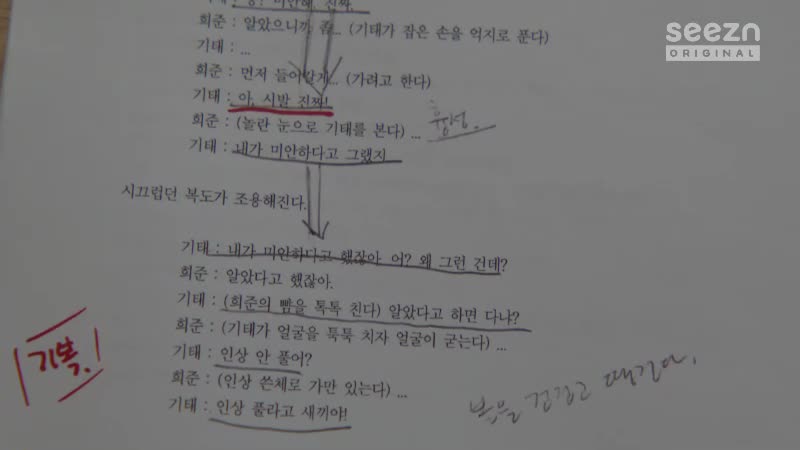 seezn
ORIGINAL
미안해. 진짜.
희준 : 알았으니까 좀... (기태가 잡은 손을 억지로 푼다)
기태 : ...
희준 : 먼저 들어갈게... (가려고 한다)
기태 : 아, 시발 진짜!
희준 : (놀란 눈으로 기태를 본다) ...
기태 : 내가 미안하다고 그랬지
시끄럽던 복도가 조용해진다.
기태 : 내가 미안하다고 했잖아 어? 왜 그런 건데?
희준 : 알았다고 했잖아.
기태 : (희준의 뺨을 톡톡 친다) 알았다고 하면 다냐?
희준 : (기태가 얼굴을 툭툭 치자 얼굴이 굳는다) ...
기태 : 인상 안 풀어?
희준 : (인상 쓴체로 가만 있는다) ...
기태 : 인상 풀라고 새끼야!
기복.